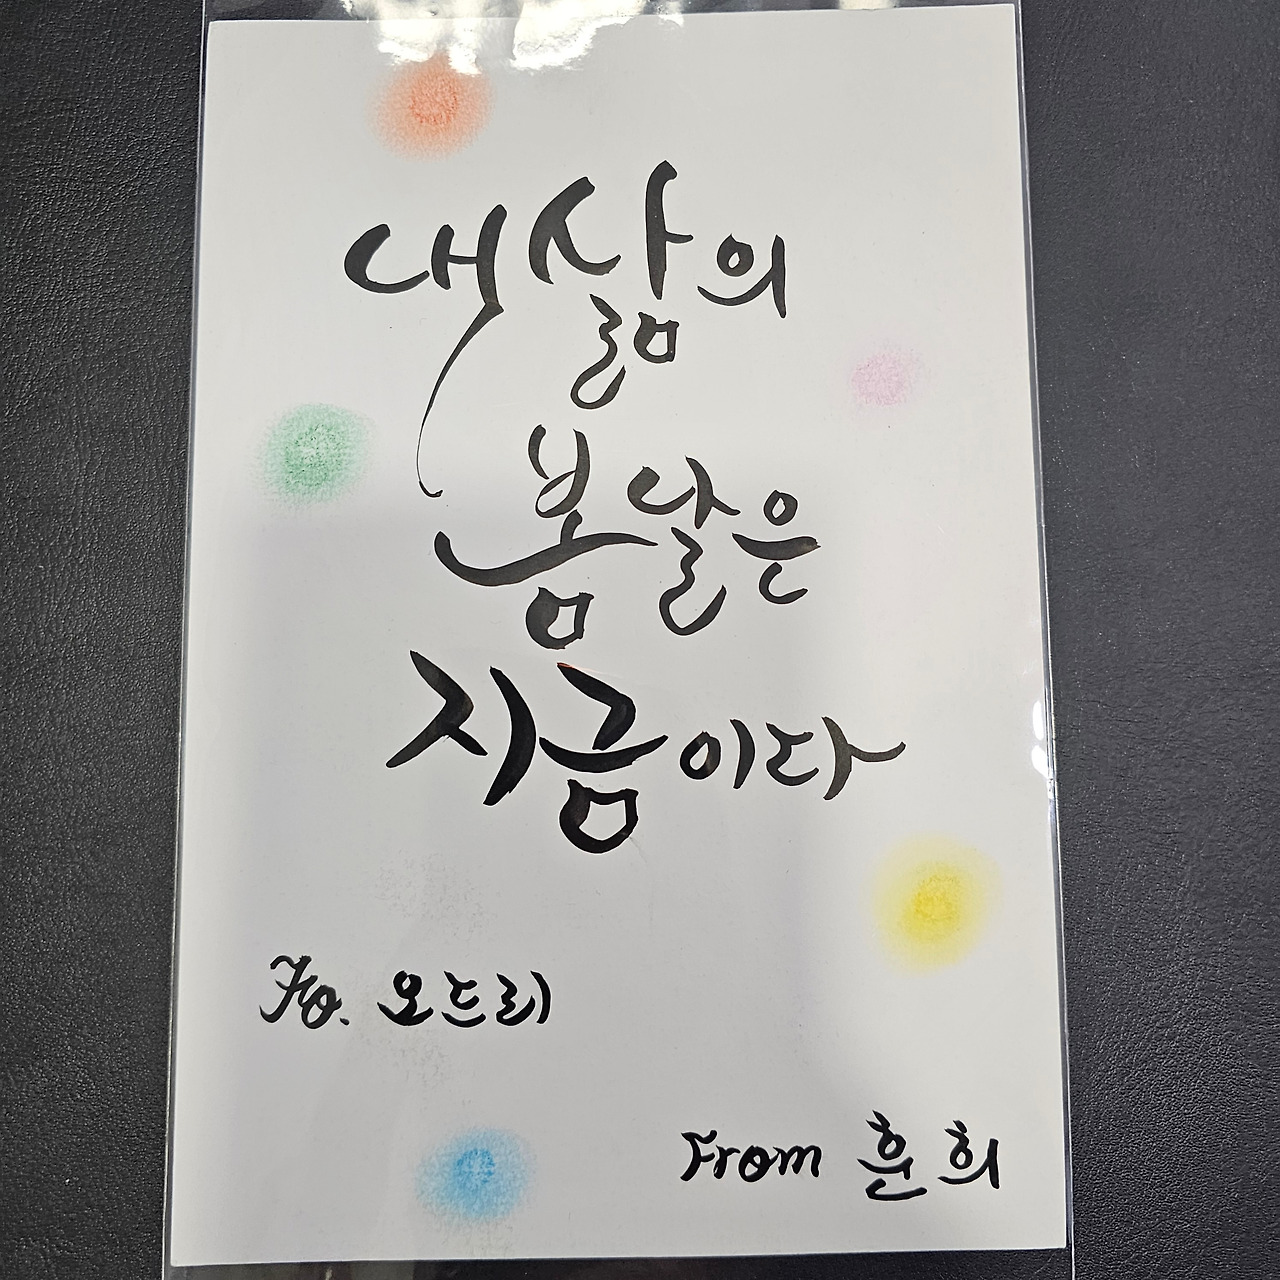 내 삶의
봄날은
지금이다
To. 오드리
From 훈희